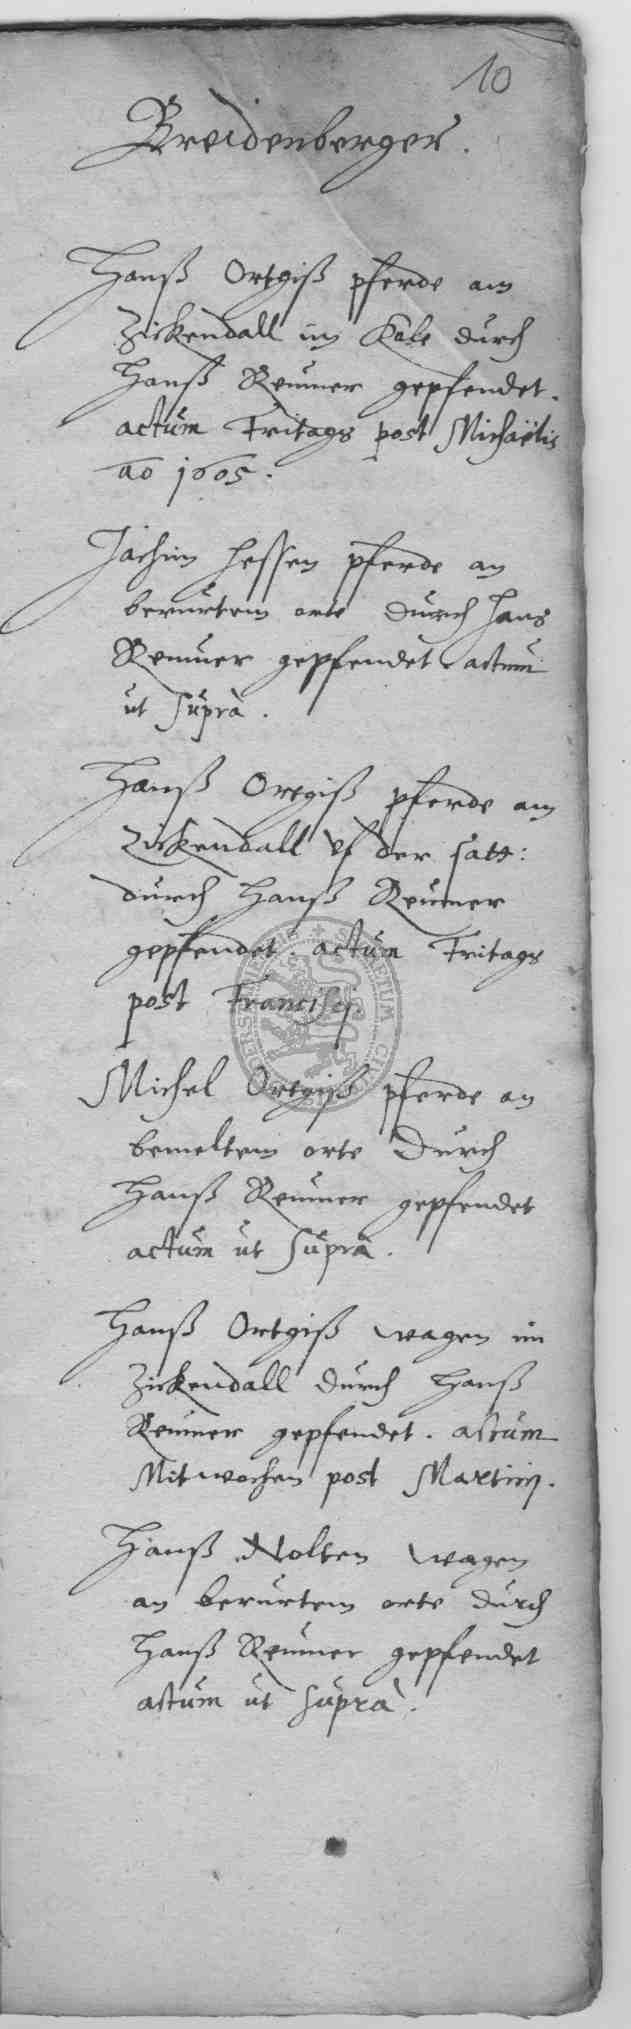 10
Breidenberger.
Hanß Ortgiß pferde am
Zickendall im Kole durch
Hanß Reumer gepfendet.
actum Fritags post Michaëlis
ao 1605.
Jachim Hessen pferde an
berurtem orte durch Hans
Reumer gepfendet. actum
ut suprà.
Hanß Ortgiß pferde am
Zickendall uf der satt:
durch Hanß Reumer
gepfendet. actum Fritags
post Francisci.
Michel Ortgiß pferde an
bemeltem orte durch
Hanß Reumer gepfendet
actum ut suprà.
Hanß Ortgiß wagen im
Zickendall durch Hanß
Reumer gepfendet. actum
Mitwochen post Martinj.
Hanß Nolten wagen
an berurtem orte durch
Hanß Reumer gepfendet
actum ut suprà.